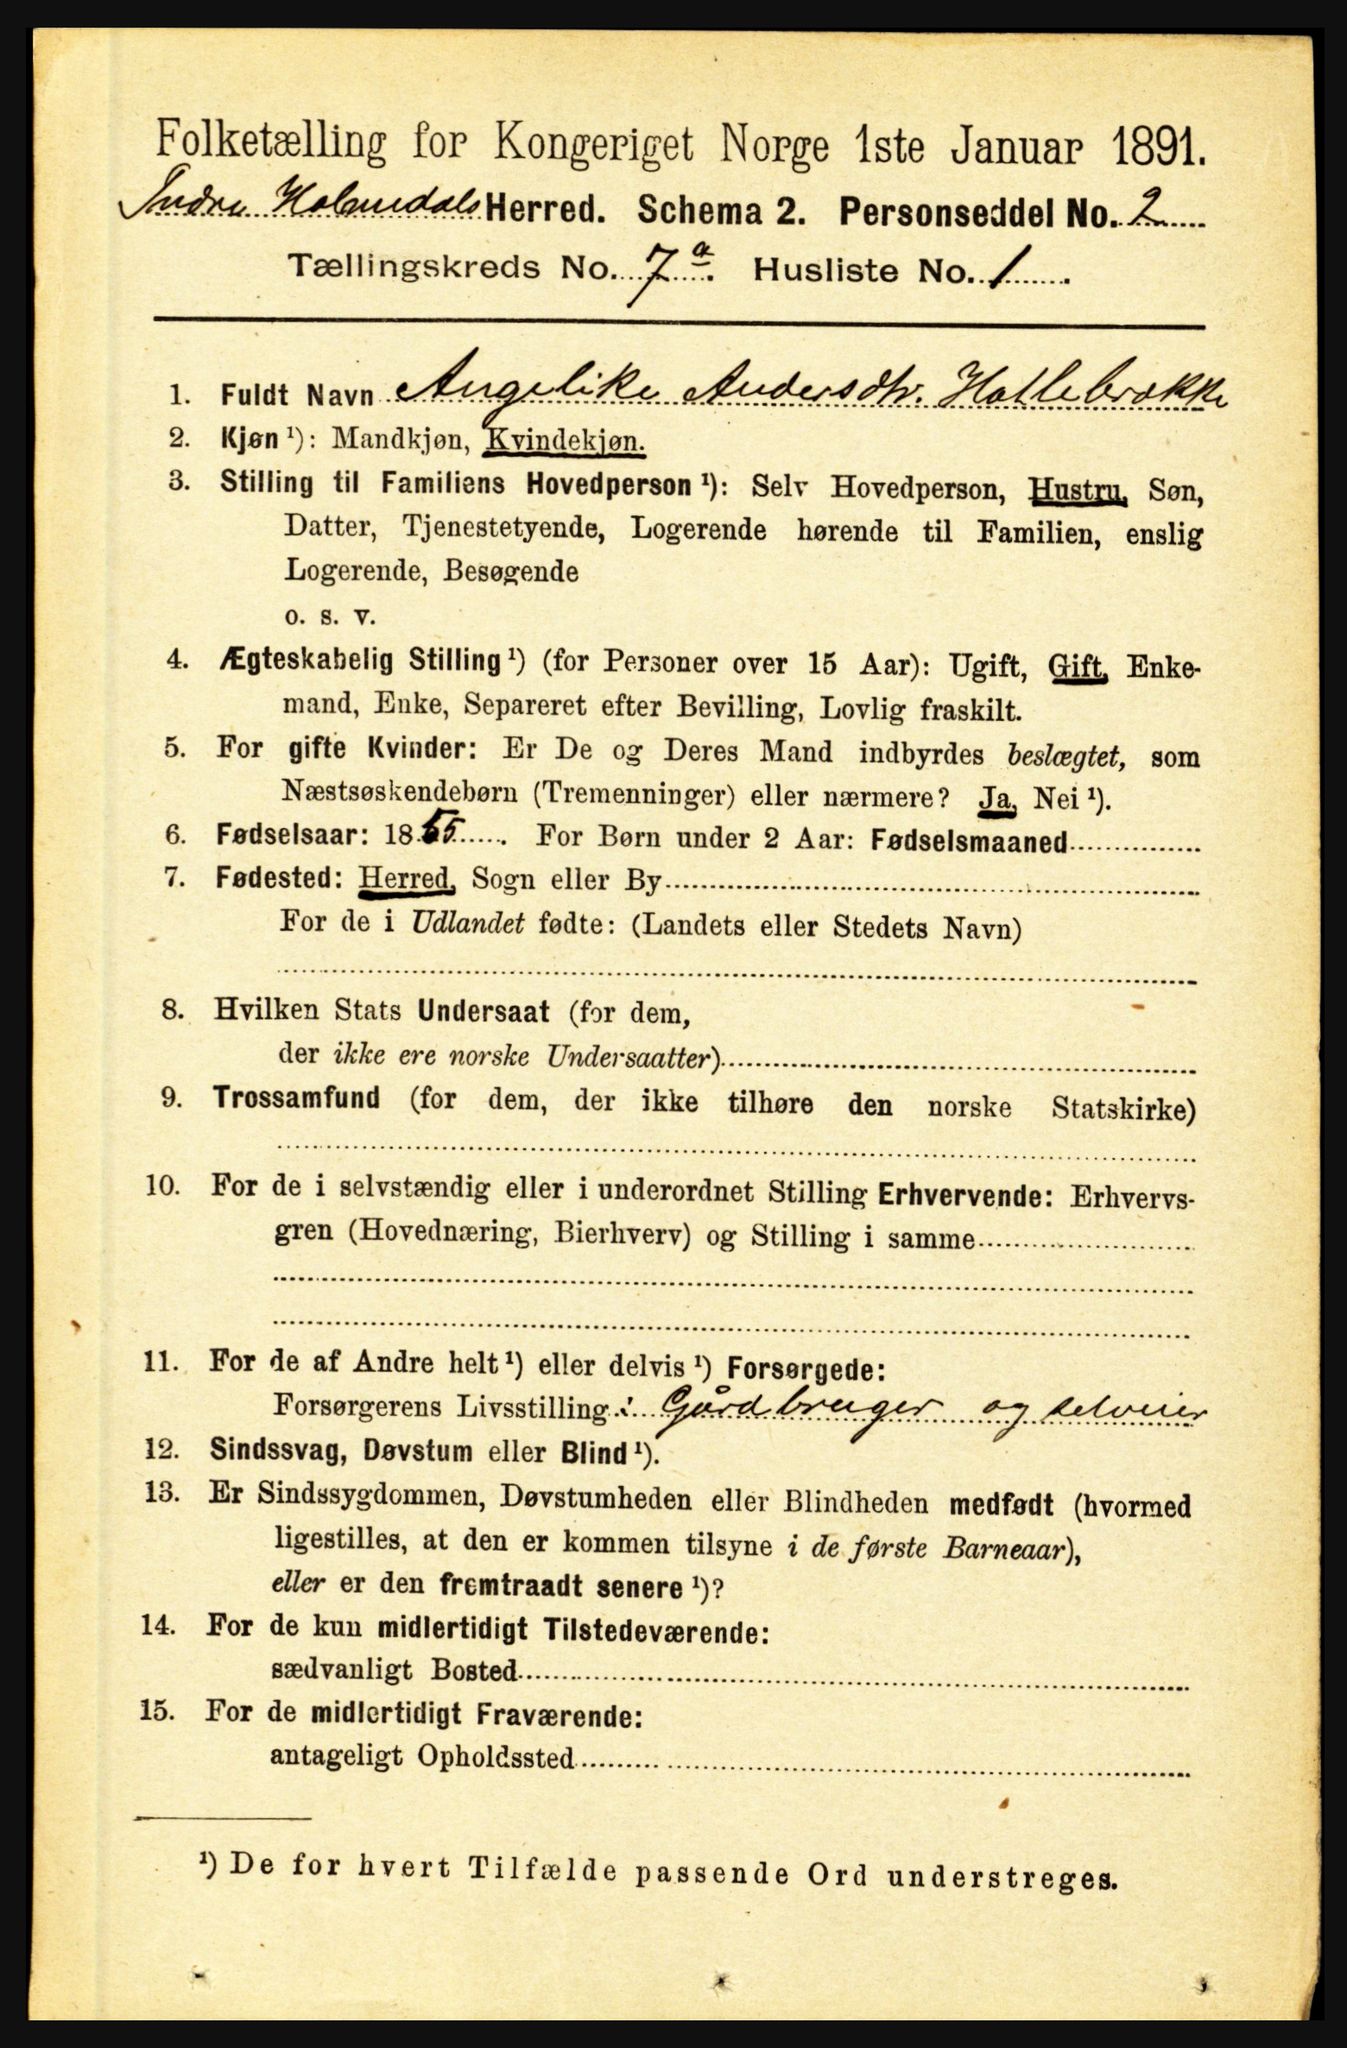 Folketælling for Kongeriget Norge 1ste Januar 1891.
Indre Holmedals Herred. Schema 2. Personseddel No. 2
Tællingskreds No. 7a. Husliste No. 1.
1. Fuldt Navn Angelike Andersdtr. Hatlebrække
2. Kjøn ¹): Mandkjøn, Kvindekjøn.
3. Stilling til Familiens Hovedperson ¹): Selv Hovedperson, Hustru, Søn,
Datter, Tjenestetyende, Logerende hørende til Familien, enslig
Logerende, Besøgende
o. s. v.
4. Ægteskabelig Stilling ¹) (for Personer over 15 Aar): Ugift, Gift, Enke-
mand, Enke, Separeret efter Bevilling, Lovlig fraskilt.
5. For gifte Kvinder: Er De og Deres Mand indbyrdes beslægtet, som
Næstsøskendebørn (Tremenninger) eller nærmere? Ja, Nei ¹).
6. Fødselsaar: 1855. For Børn under 2 Aar: Fødselsmaaned
7. Fødested: Herred, Sogn eller By
For de i Udlandet fødte: (Landets eller Stedets Navn)
8. Hvilken Stats Undersaat (for dem,
der ikke ere norske Undersaatter)
9. Trossamfund (for dem, der ikke tilhøre den norske Statskirke)
10. For de i selvstændig eller i underordnet Stilling Erhvervende: Erhvervs-
gren (Hovednæring, Bierhverv) og Stilling i samme
11. For de af Andre helt ¹) eller delvis ¹) Forsørgede:
Forsørgerens Livsstilling: Gårdbruger og selveier
12. Sindssvag, Døvstum eller Blind ¹).
13. Er Sindssygdommen, Døvstumheden eller Blindheden medfødt (hvormed
ligestilles, at den er kommen tilsyne i de første Barneaar),
eller er den fremtraadt senere ¹)?
14. For de kun midlertidigt Tilstedeværende:
sædvanligt Bosted
15. For de midlertidigt Fraværende:
antageligt Opholdssted
¹) De for hvert Tilfælde passende Ord understreges.